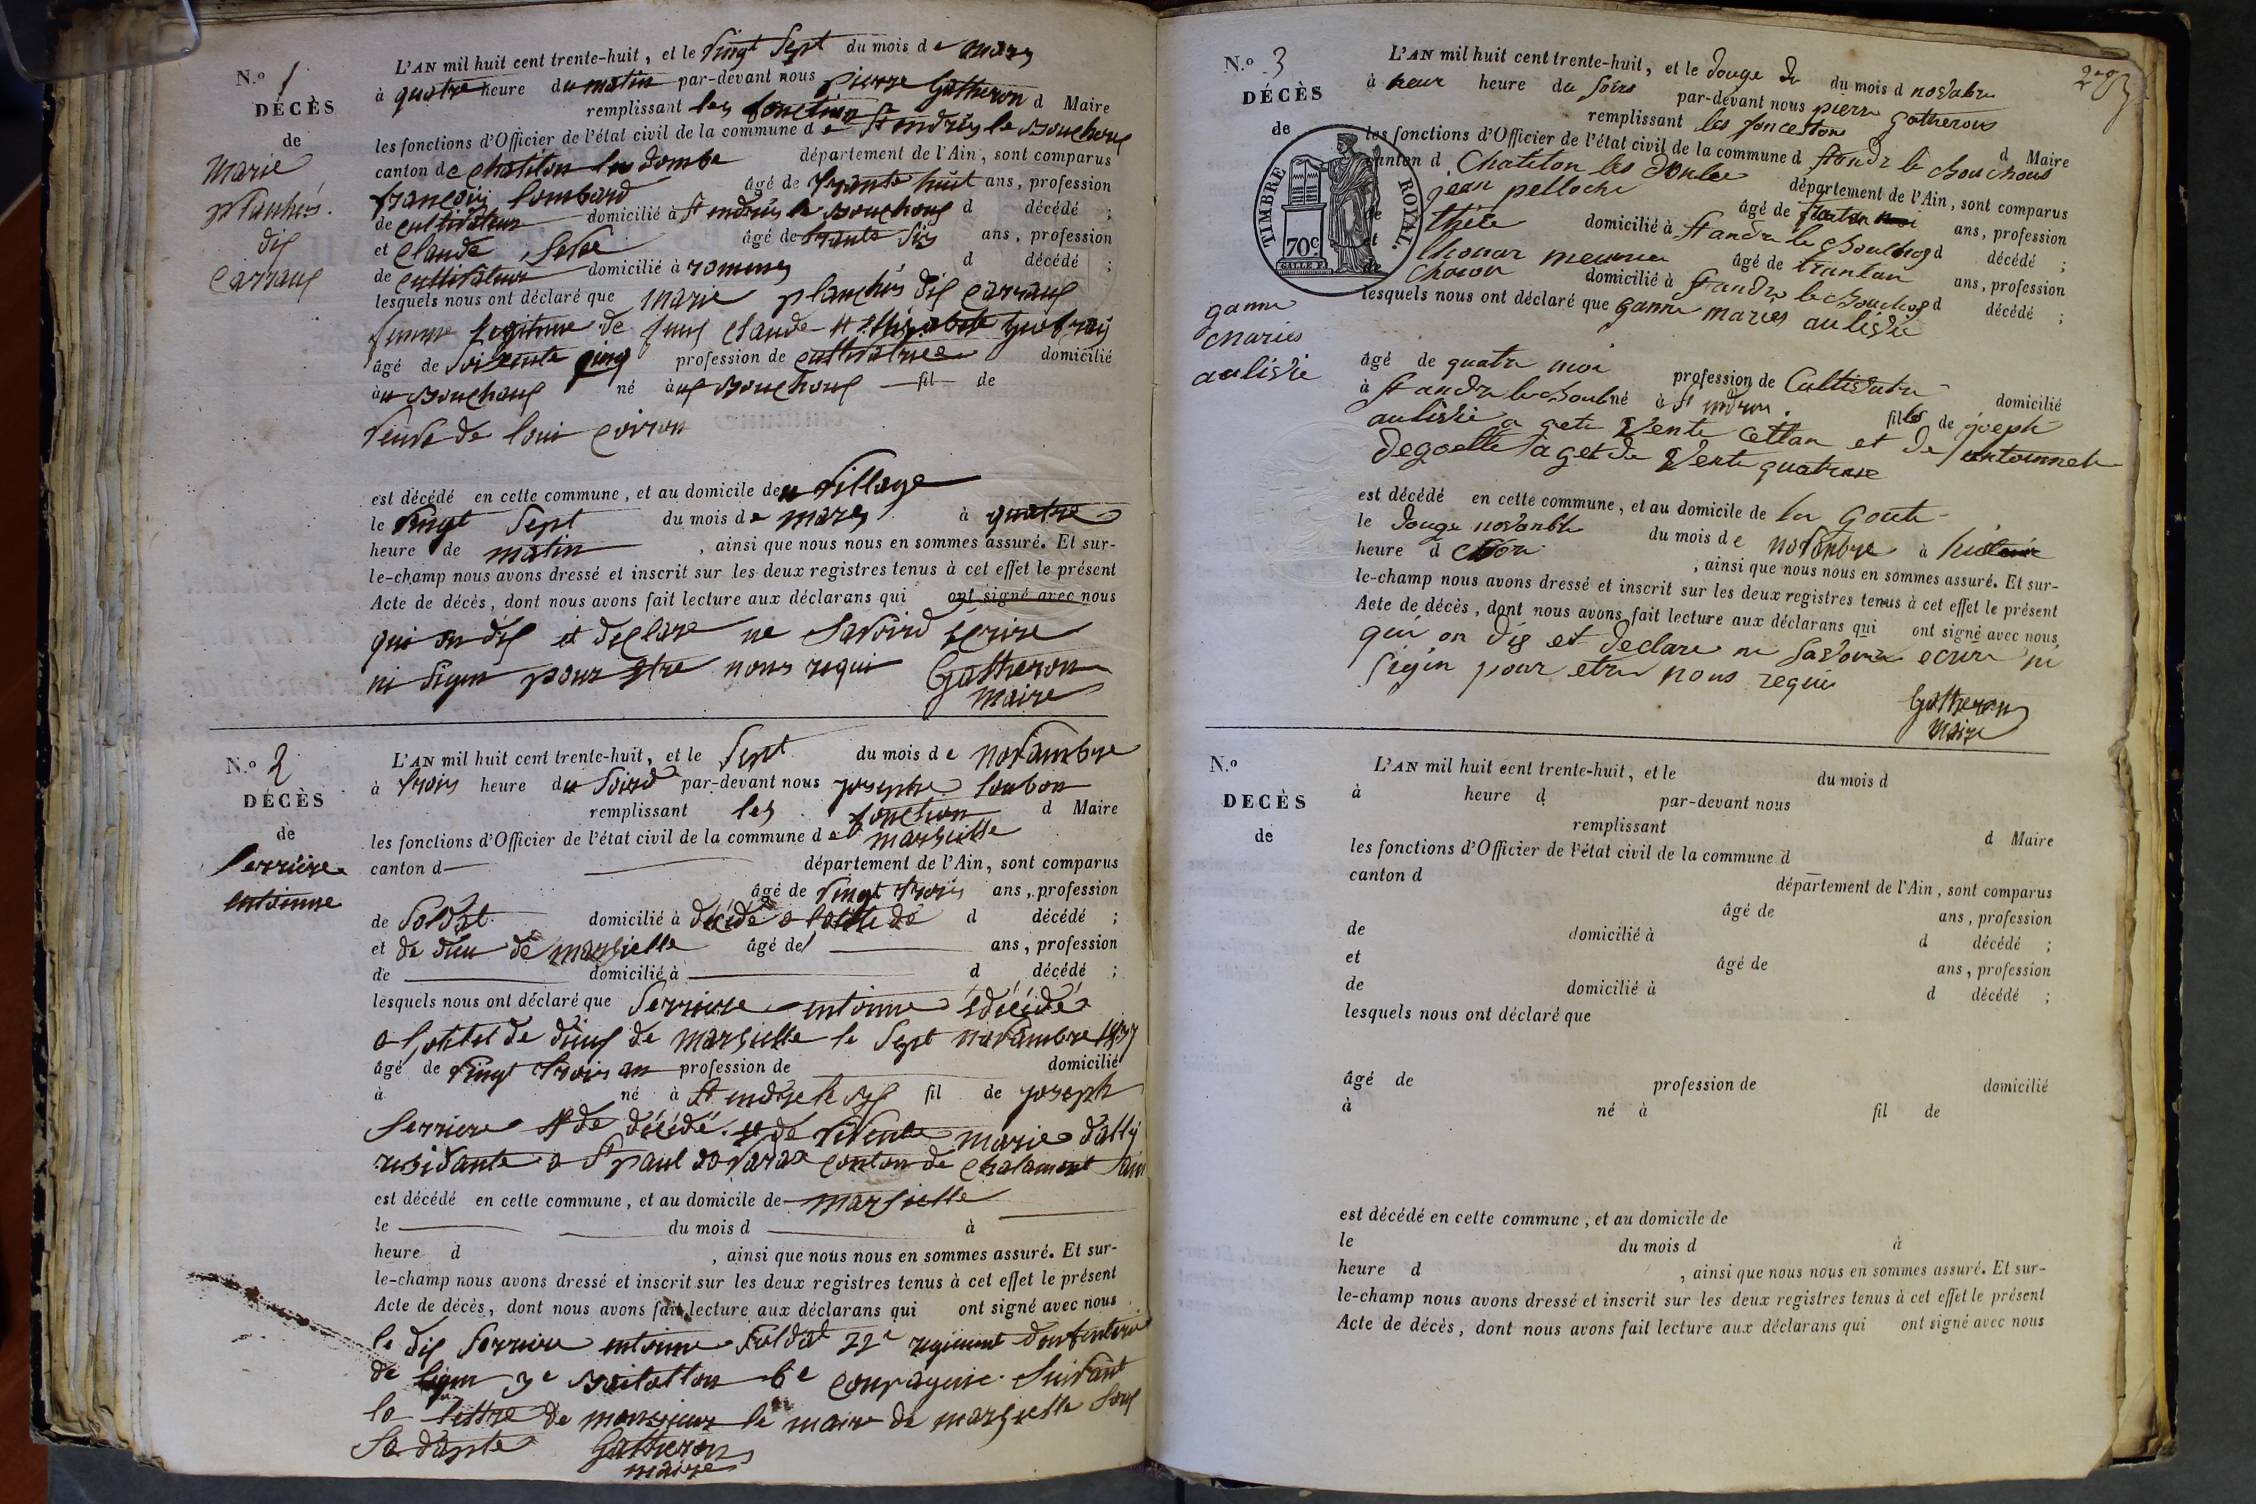 N.º 1
DÉCÈS
de
marie
planchis
dis
Carraus
L'AN mil huit cent trente-huit, et le vingt sept du mois de mars
à quatre heure du matin par-devant nous pierre Gatheron d Maire
remplissant les fonction
les fonctions d'Officier de l'état civil de la commune de St andrés le Bouchous
canton de chatilon les dombe département de l'Ain, sont comparus
françois lombard âgé de huit ans, profession
de cultivateur domicilié à St andrés le Bouchous d décédé ;
et Claude âgé de trante sis ans, profession
de cultivateur domicilié à romenes d décédé ;
lesquels nous ont déclaré que marie planchis dis Carraus
femme legitime de claude
âgé de soisente cinq profession de cultivatrice domicilié
au Bouchous né aus Bouchous fil de
veuve de loui
est décédé en cette commune, et au domicile de village
le vingt sept du mois de mars à quatre
heure de matin , ainsi que nous nous en sommes assuré. Et sur-
le-champ nous avons dressé et inscrit sur les deux registres tenus à cet effet le présent
Acte de décès, dont nous avons fait lecture aux déclarans qui ont signé avec nous
qui on dis et declare ne savoird ecrire
ni signer pour etre nous requi Gatheron
maire
N.º 2
DÉCÈS
de
Serriere
entoinne
L'AN mil huit cent trente-huit, et le sept du mois de novambre
à trois heure du soird par-devant nous josephe loubon
remplissant les fonction d Maire
les fonctions d'Officier de l'état civil de la commune de marseille
canton d département de l'Ain, sont comparus
âgé de vingt trois ans, profession
de soldat domicilié à décédé a d décédé ;
et de dieu de marsielle âgé de ans, profession
de domicilié à d décédé ;
lesquels nous ont déclaré que Serriere entoinne décédé
a de dieus de marsielle le sept novambre 1837
âgé de vingt trois an profession de domicilié
à né à St andre fil de joseph
Serriere décédé et de vivente marie
residante a St paul de varax conton de chalamont ain
est décédé en cette commune, et au domicile de marsielle
le du mois d à
heure d , ainsi que nous nous en sommes assuré. Et sur-
le-champ nous avons dressé et inscrit sur les deux registres tenus à cet effet le présent
Acte de décès, dont nous avons fait lecture aux déclarans qui ont signé avec nous
le dis Serriere entoinne soldat 22e regiment
de ligne 3e 6e compagnie suivant
la lettre de monsieur le maire de marsielle sous
sa dante Gatheron
maire
N.º 3
DÉCÈS
de
TIMBRE ROYAL.
70c
ganne
maries
aulivie
L'AN mil huit cent trente-huit, et le douge du du mois d novabre
à neux heure du soire par-devant nous pierre gatherons
remplissant les d Maire
les fonctions d'Officier de l'état civil de la commune d St andr le Bouchous
canton d Chatelon les département de l'Ain, sont comparus
jean pelloche âgé de ans, profession
de domicilié à St andre le d décédé ;
et meunier âgé de ans, profession
de domicilié à St andre le d décédé ;
lesquels nous ont déclaré que ganne maries aulivie
âgé de quatre moi profession de Cultivatr domicilié
à St andre le né à fille de joseph
aulivie et de
quatrase
est décédé en cette commune, et au domicile de la
le douge novanbre du mois de novonbre à
heure d , ainsi que nous nous en sommes assuré. Et sur-
le-champ nous avons dressé et inscrit sur les deux registres tenus à cet effet le présent
Acte de décès, dont nous avons fait lecture aux déclarans qui ont signé avec nous
qui on dis et declare ne savoir ecrire ni
pour etre nous requis
Gatheron
maire
N.º
DECÈS
de
L'AN mil huit cent trente-huit, et le du mois d
à heure d par-devant nous
remplissant d Maire
les fonctions d'Officier de l'état civil de la commune d
canton d département de l'Ain, sont comparus
âgé de ans, profession
de domicilié à d décédé ;
et âgé de ans, profession
de domicilié à d décédé ;
lesquels nous ont déclaré que
âgé de profession de domicilié
à né à fil de
est décédé en cette commune, et au domicile de
le du mois d à
heure d , ainsi que nous nous en sommes assuré. Et sur-
le-champ nous avons dressé et inscrit sur les deux registres tenus à cet effet le présent
Acte de décès, dont nous avons fait lecture aux déclarans qui ont signé avec nous